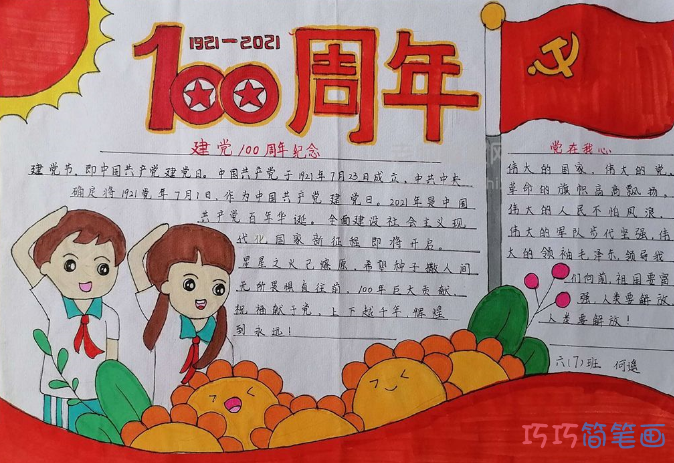 1921-2021
100周年
建党100周年纪念
建党节，即中国共产党建党日。中国共产党于1921年7月23日成立，中共中央
确定将1921党年7月1日，作为中国共产党建党日。2021年是中国
共产党百年华诞。全面建设社会主义现
代化国家新征程即将开启。
星星之火已燎原，希望种子撒人间
无所畏惧直往前，100年巨大贡献，
祝福献于党，上下越千年辉煌
到永远！
党在我心
伟大的国家，伟大的党。
革命的旗帜高高飘扬。
伟大的人民不怕风浪，
伟大的军队当代坚强，伟
大的领袖毛泽东领导我
们向前，祖国要富
强，人类要解放
人类要解放！
六(7)班 何遥
巧巧简笔画